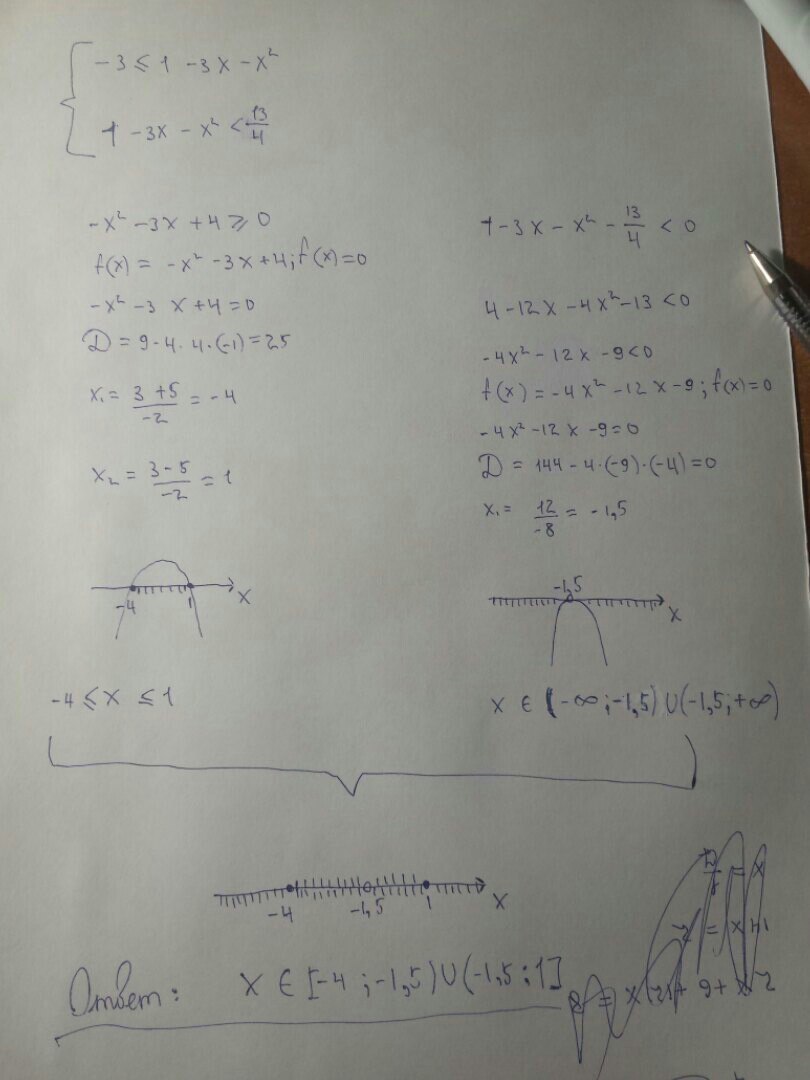 -3 ≤ 1 -3x - x²
1 -3x - x² < 13/4
-x² -3x +4 ≥ 0
f(x) = -x² -3x +4; f(x)=0
-x² -3 x +4 = 0
D = 9-4·4·(-1) = 25
x₁ = (3+5)/-2 = -4
x₂ = (3-5)/-2 = 1
-4
1
x
-4 ≤ x ≤ 1
1 -3x - x² - 13/4 < 0
4 -12x -4x² -13 < 0
-4x² -12x -9 < 0
f(x) = -4x² -12x -9; f(x)=0
-4x² -12x -9 = 0
D = 144 - 4·(-9)·(-4) = 0
x₁ = 12/-8 = -1,5
-1,5
x
x ∈ (-∞; -1,5) ∪ (-1,5; +∞)
-4
-1,5
1
x
Ответ: x ∈ [-4; -1,5) ∪ (-1,5; 1]